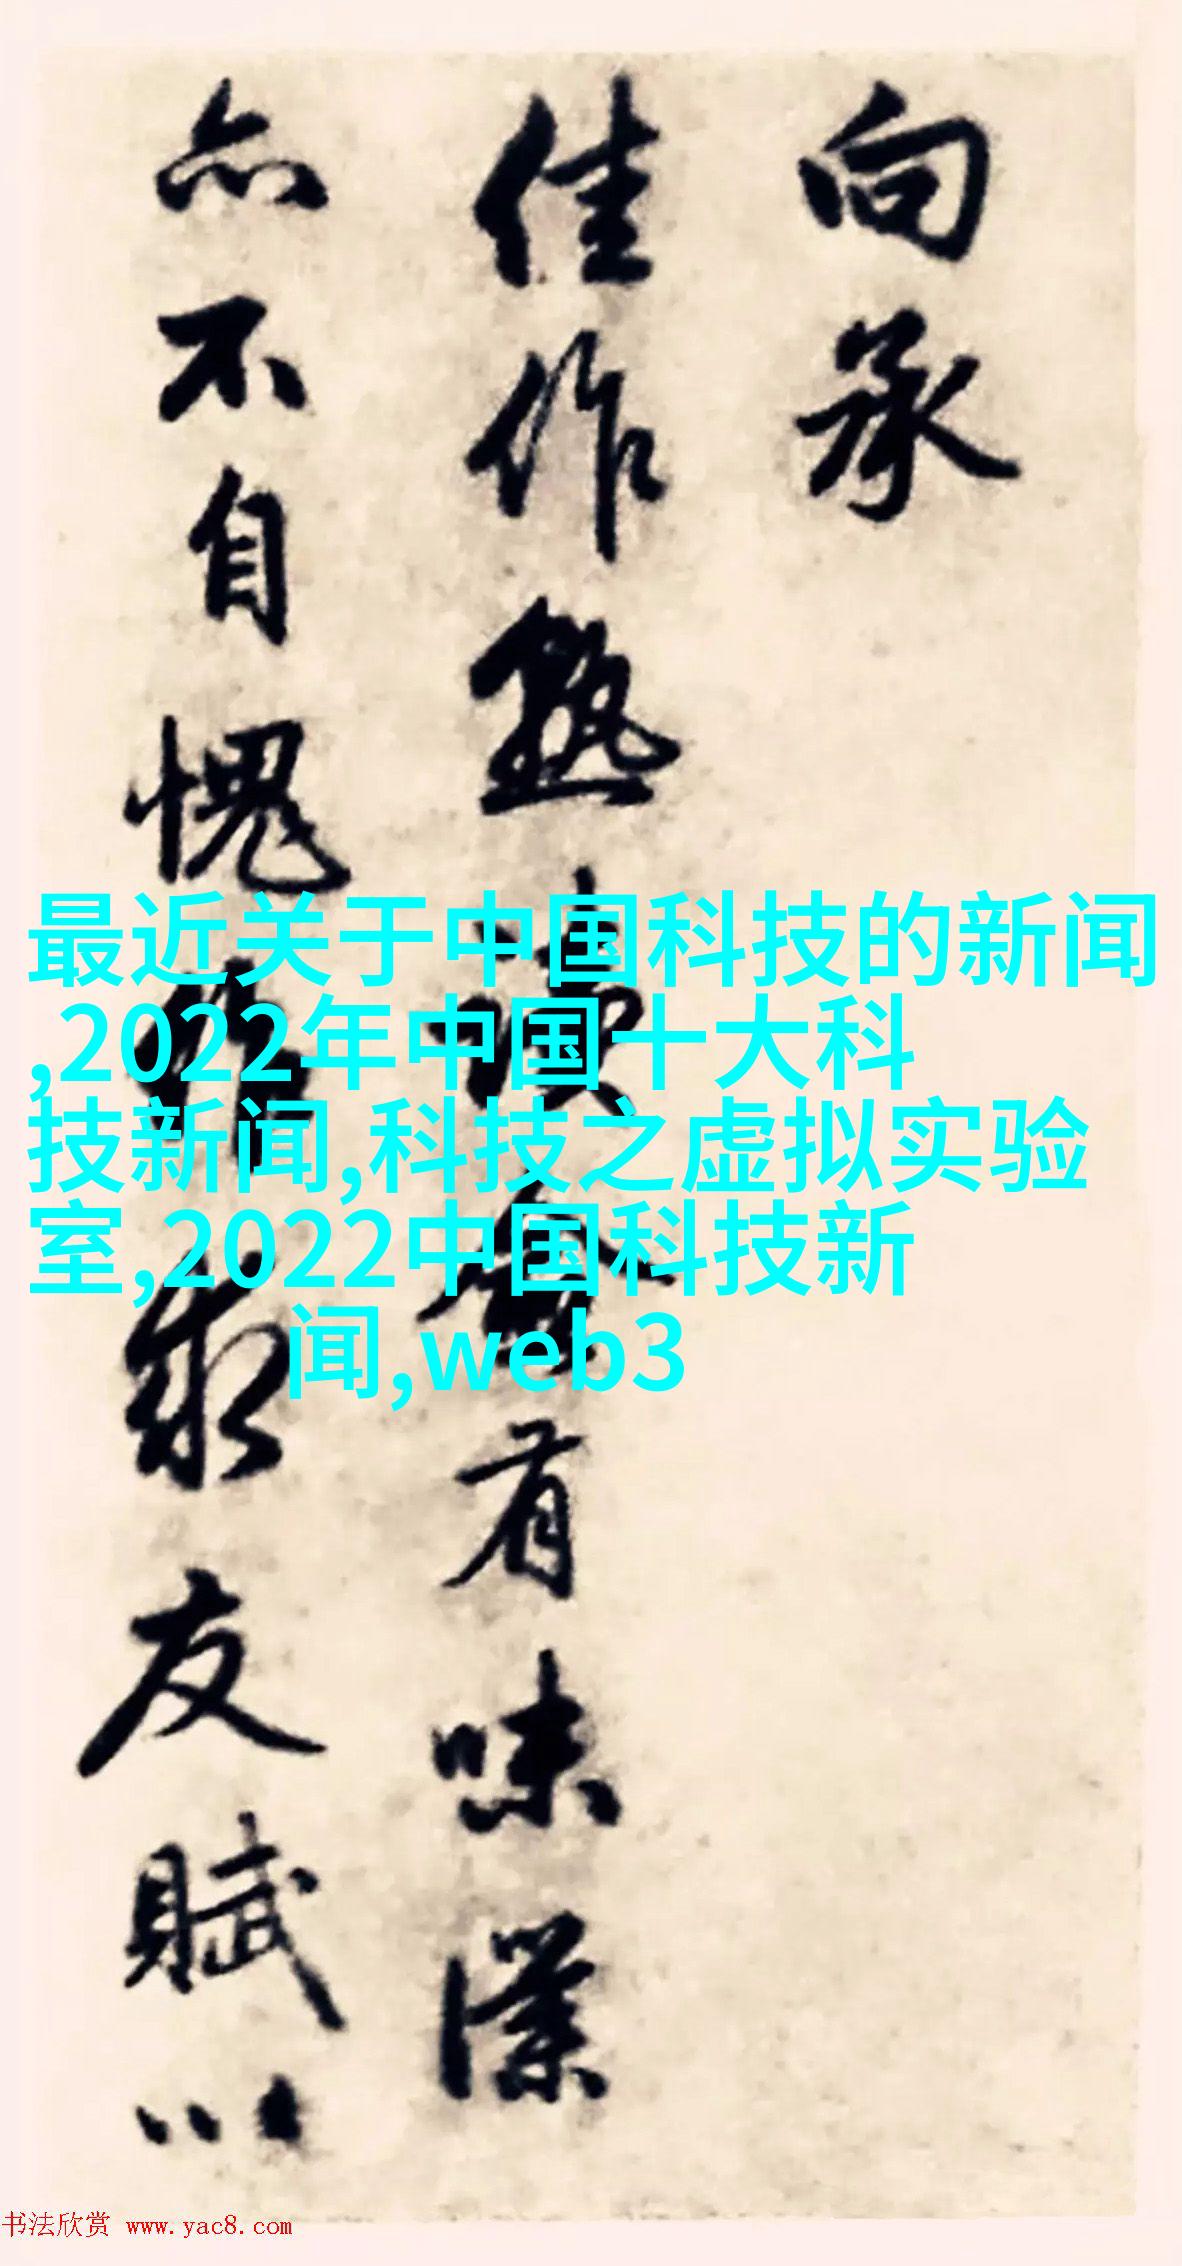 向承
佳作熟读会有味漢
亦不自愧作求友賦以
最近关于中国科技的新闻
,2022年中国十大科
技新闻,科技之虚拟实验
室,2022中国科技新
闻,web3
书法欣赏 www.yac8.com